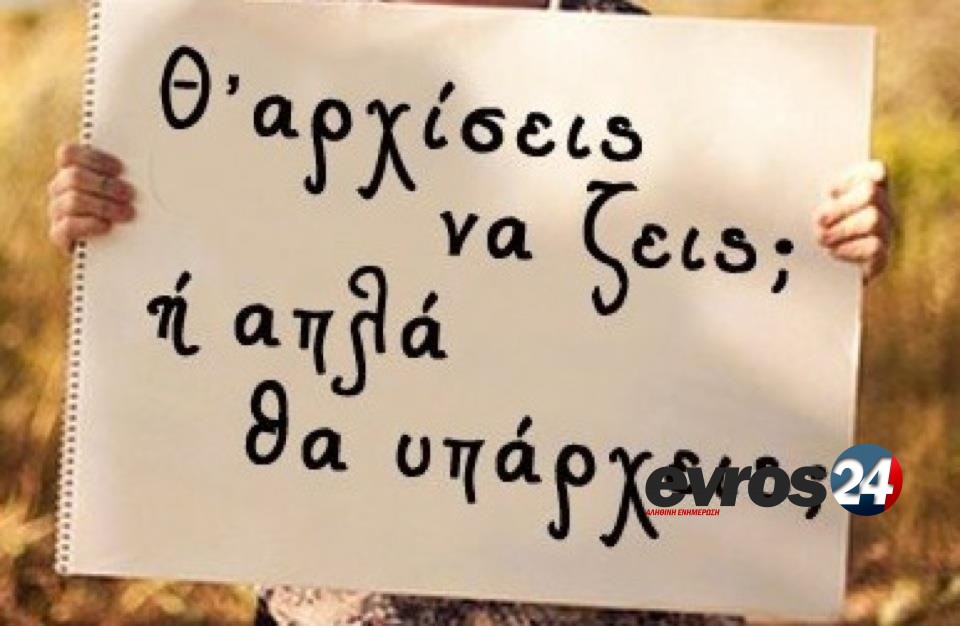 Θ'αρχίσεις
να ζεις;
ή απλά
θα υπάρχεις;
evros24
ΑΛΗΘΙΝΗ ΕΝΗΜΕΡΩΣΗ